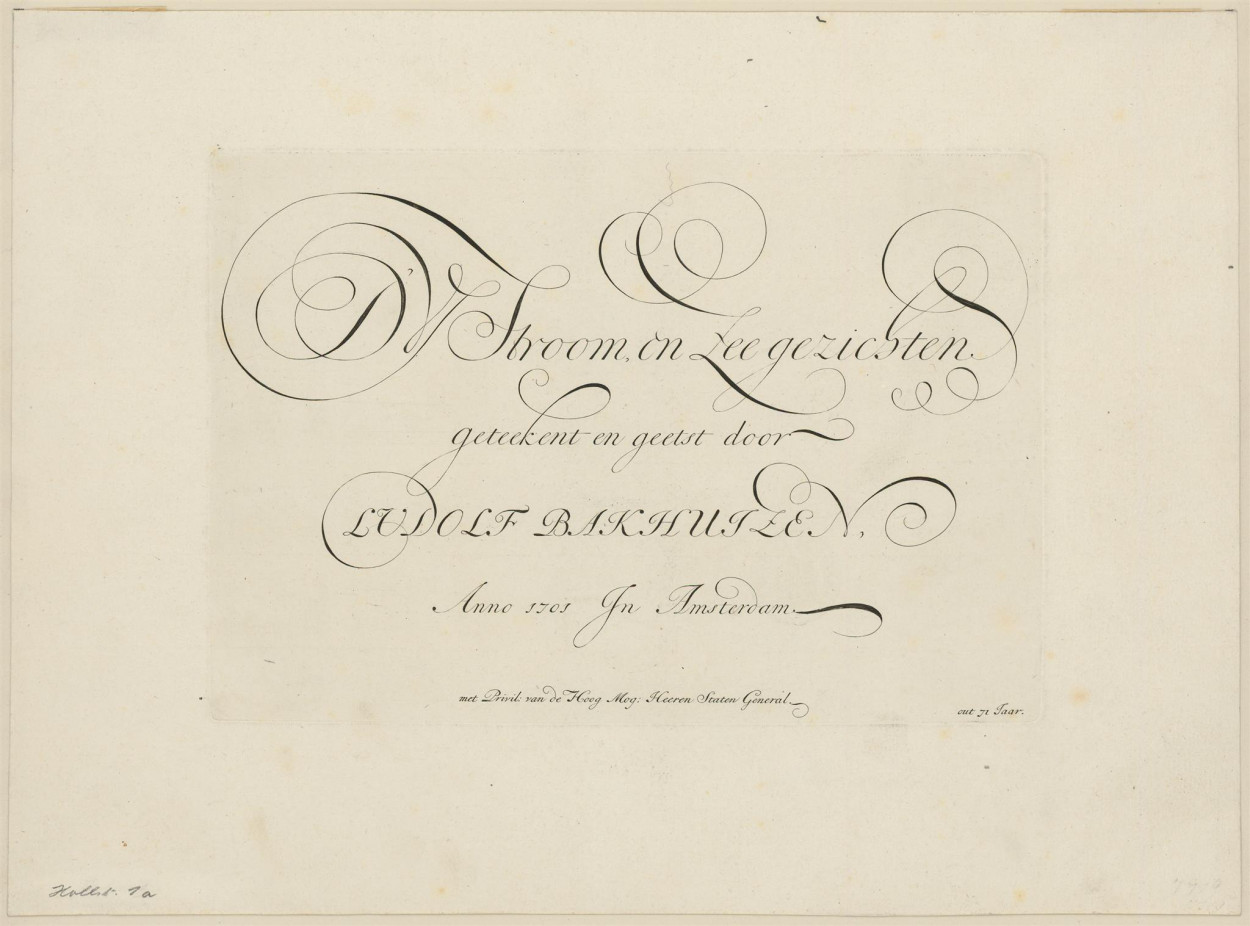 D'Y Stroom, en Zee gezichten.
geteekent en geetst door
LUDOLF BAKHUIZEN,
Anno 1701 In Amsterdam.
met Privil: van de Hoog Mog: Heeren Staten Generàl.
out 71 Jaar.
Hollst. 1a